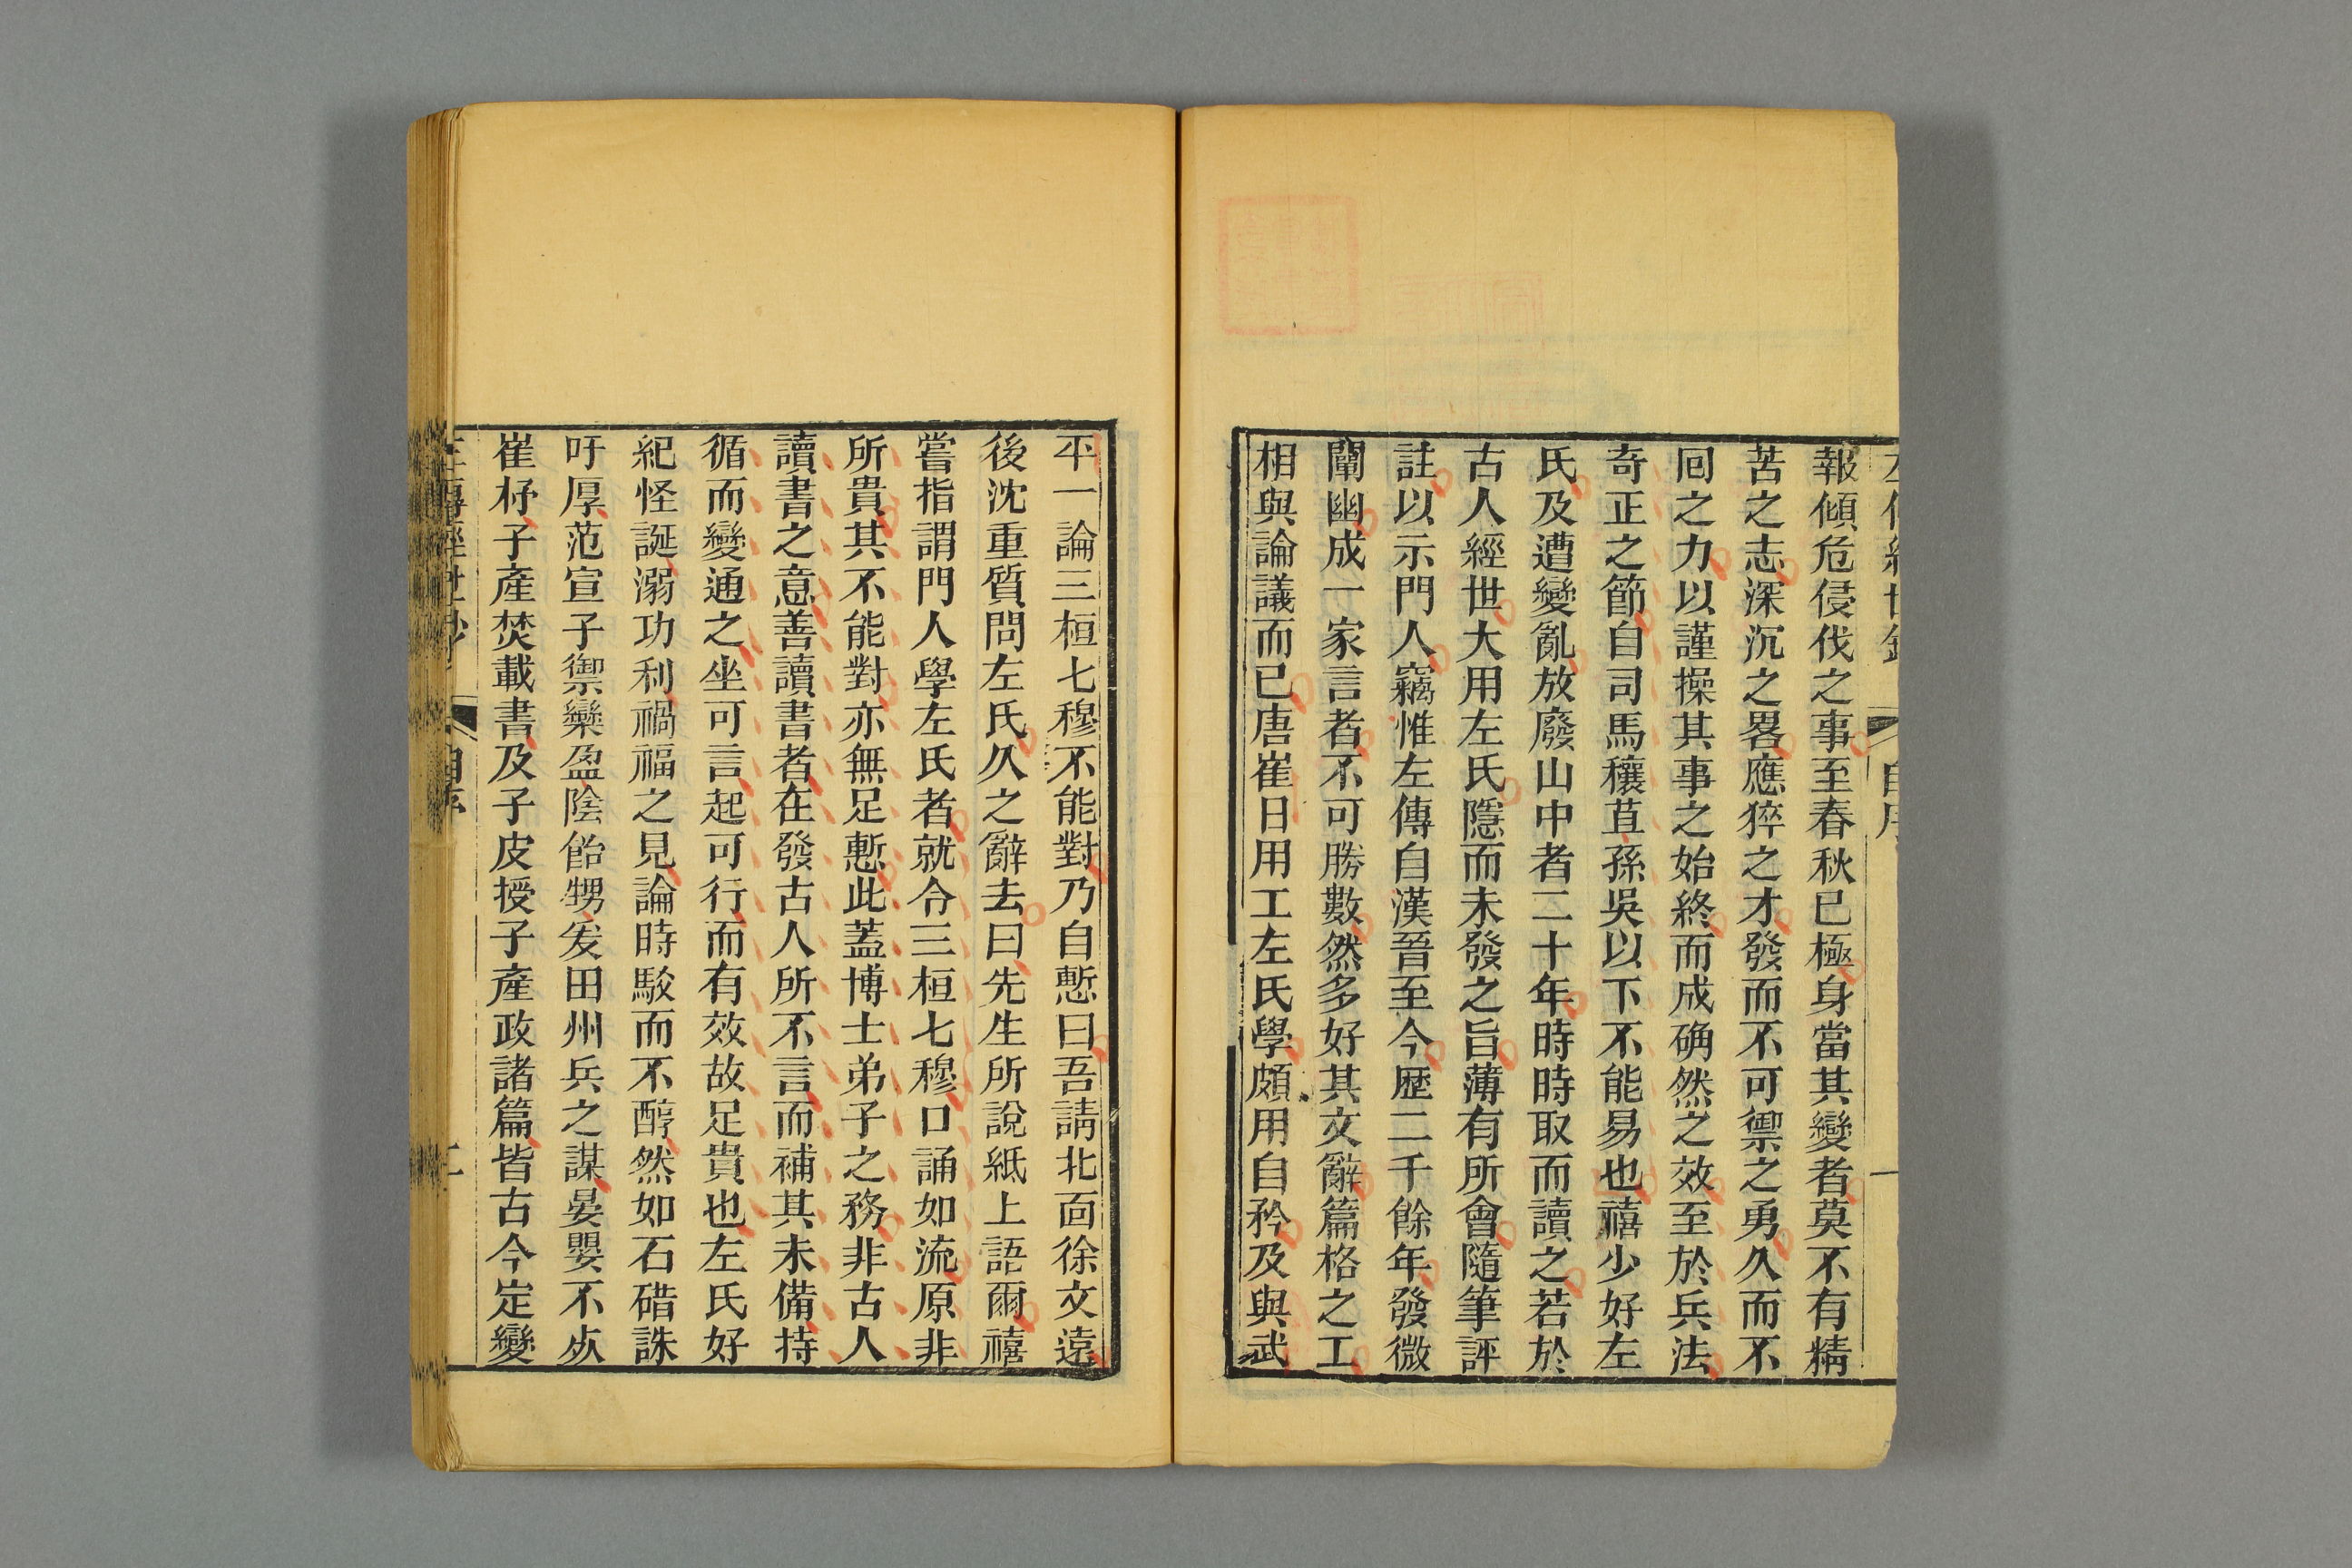 報傾危侵伐之事至春秋已極身當其變者莫不有精
苦之志深沉之畧應猝之才發而不可禦之勇久而不
囘之力以謹操其事之始終而成确然之效至於兵法
奇正之節自司馬穰苴孫吳以下不能易也禧少好左
氏及遭變亂放廢山中者二十年時時取而讀之若於
古人經世大用左氏隱而未發之旨薄有所會隨筆評
註以示門人竊惟左傳自漢晉至今歷二千餘年發微
闡幽成一家言者不可勝數然多好其文辭篇格之工
相與論議而已唐崔日用工左氏學頗用自矜及與武
平一論三桓七穆不能對乃自慙曰吾請北面徐文遠
後沈重質問左氏久之辭去曰先生所說紙上語爾禧
嘗指謂門人學左氏者就令三桓七穆口誦如流原非
所貴其不能對亦無足慙此蓋博士弟子之務非古人
讀書之意善讀書者在發古人所不言而補其未備持
循而變通之坐可言起可行而有效故足貴也左氏好
紀怪誕溺功利禍福之見論時駁而不醇然如石碏誅
吁厚范宣子禦欒盈陰飴甥爰田州兵之謀晏嬰不𣦸
崔杼子產焚載書及子皮授子產政諸篇皆古今定變
左傳經世鈔 自序 二